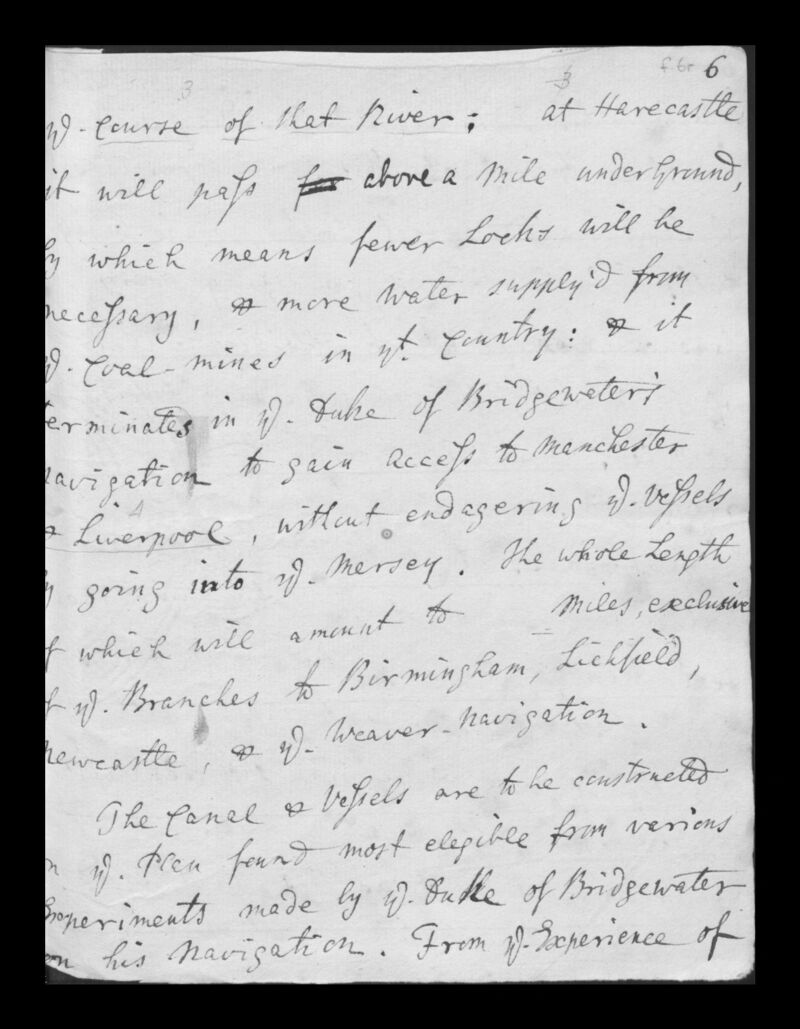 f.6r 6
3 3
ye. Course of that River; at Harecastle
it will pass for above a Mile underGround,
by which means fewer Locks will be
necessary, & more Water supply'd from
ye. Coal-mines in yt. Country: & it
terminates in ye. Duke of Bridgewater's
navigation to gain Access to Manchester
& Liverpool, without endagering ye. Vessels
by going into ye. Mersey. The whole Length
of which will amount to Miles, exclusive
of ye. Branches to Birmingham, Lichfield,
Newcastle, & ye. Weaver-navigation.
The Canal & Vessels are to be constructed
on ye. Plan found most elegible from various
Experiments made by ye. Duke of Bridgewater
on his Navigation. From ye. Experience of